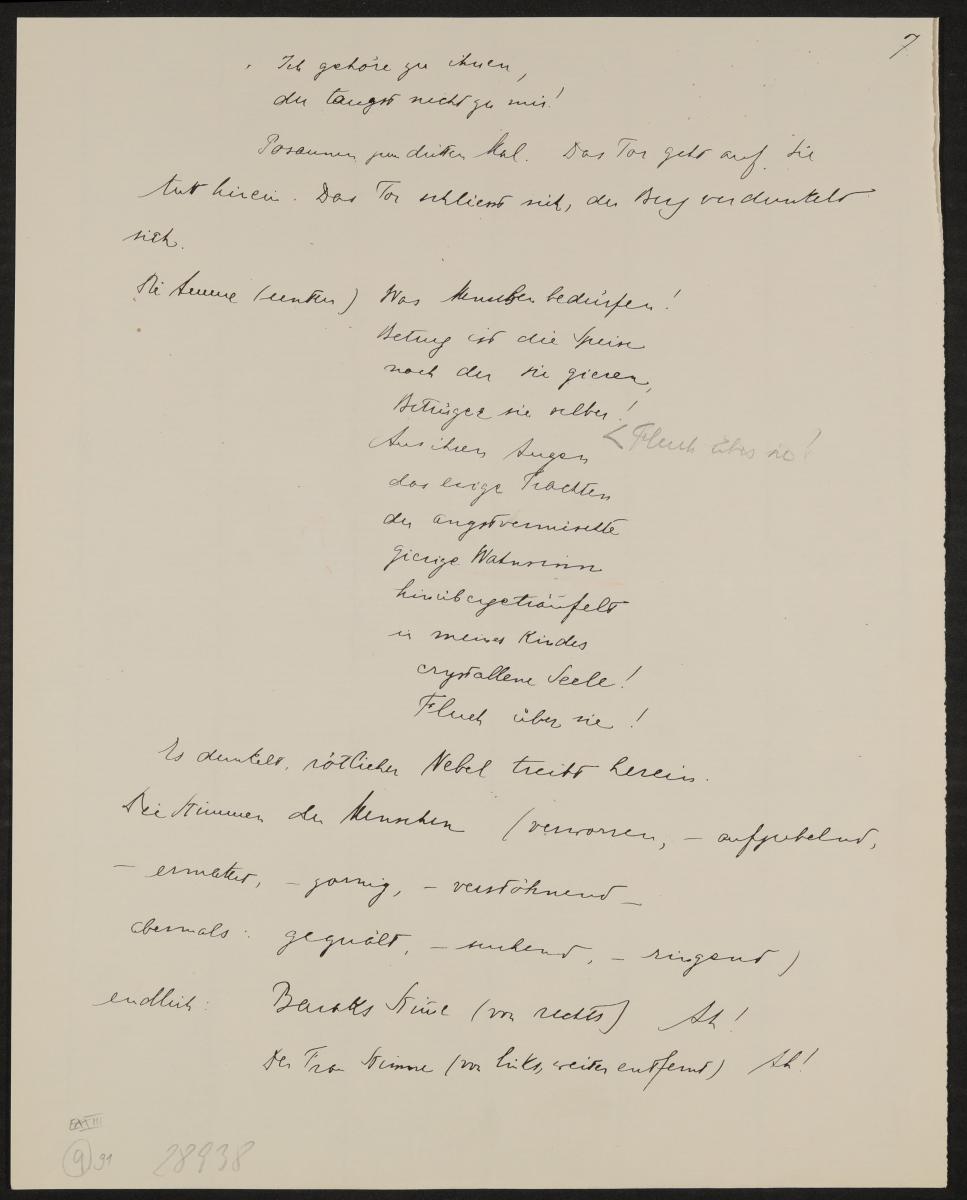 7
Ich gehöre zu ihnen,
du taugst nicht zu mir!
Posaunen zum dritten Mal. Das Tor geht auf. Sie
tritt hinein. Das Tor schliesst sich, der Berg verdunkelt
sich.
Die Amme (unten) Was Menschen bedürfen!
Betrug ist die Speise
nach der sie gieren,
Betrüger sie selber!
< Fluch über sie!
Aus ihren Augen
das ewige Trachten
der angstvermischte
gierige Wahnsinn
hinübergeträufelt
in meines Kindes
crystallene Seele!
Fluch über sie!
Es dunkelt, rötlicher Nebel treibt herein.
Die Stimmen der Menschen (verworren, – aufjubelnd,
– ermattet, – zornig, – verstöhnend –
abermals: gequält, – suchend, – ringend)
endlich: Baraks Stimme (von rechts) Ah!
Der Frau Stimme (von links, weiter entfernt) Ah!
E IV A III
9 91 28938